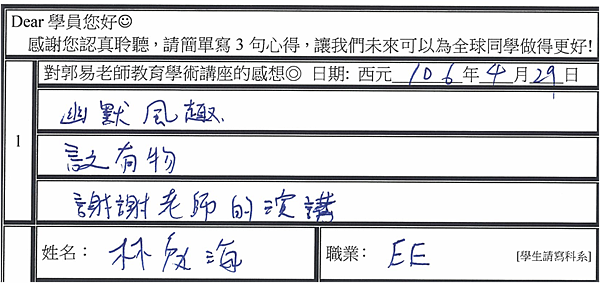 Dear 學員您好☺
感謝您認真聆聽,請簡單寫 3 句心得,讓我們未來可以為全球同學做得更好!
1 對郭易老師教育學術講座的感想◎ 日期: 西元 106 年 4 月 29 日
幽默風趣.
言之有物
謝謝老師的演講
姓名: 林 海 職業: EE [學生請寫科系]